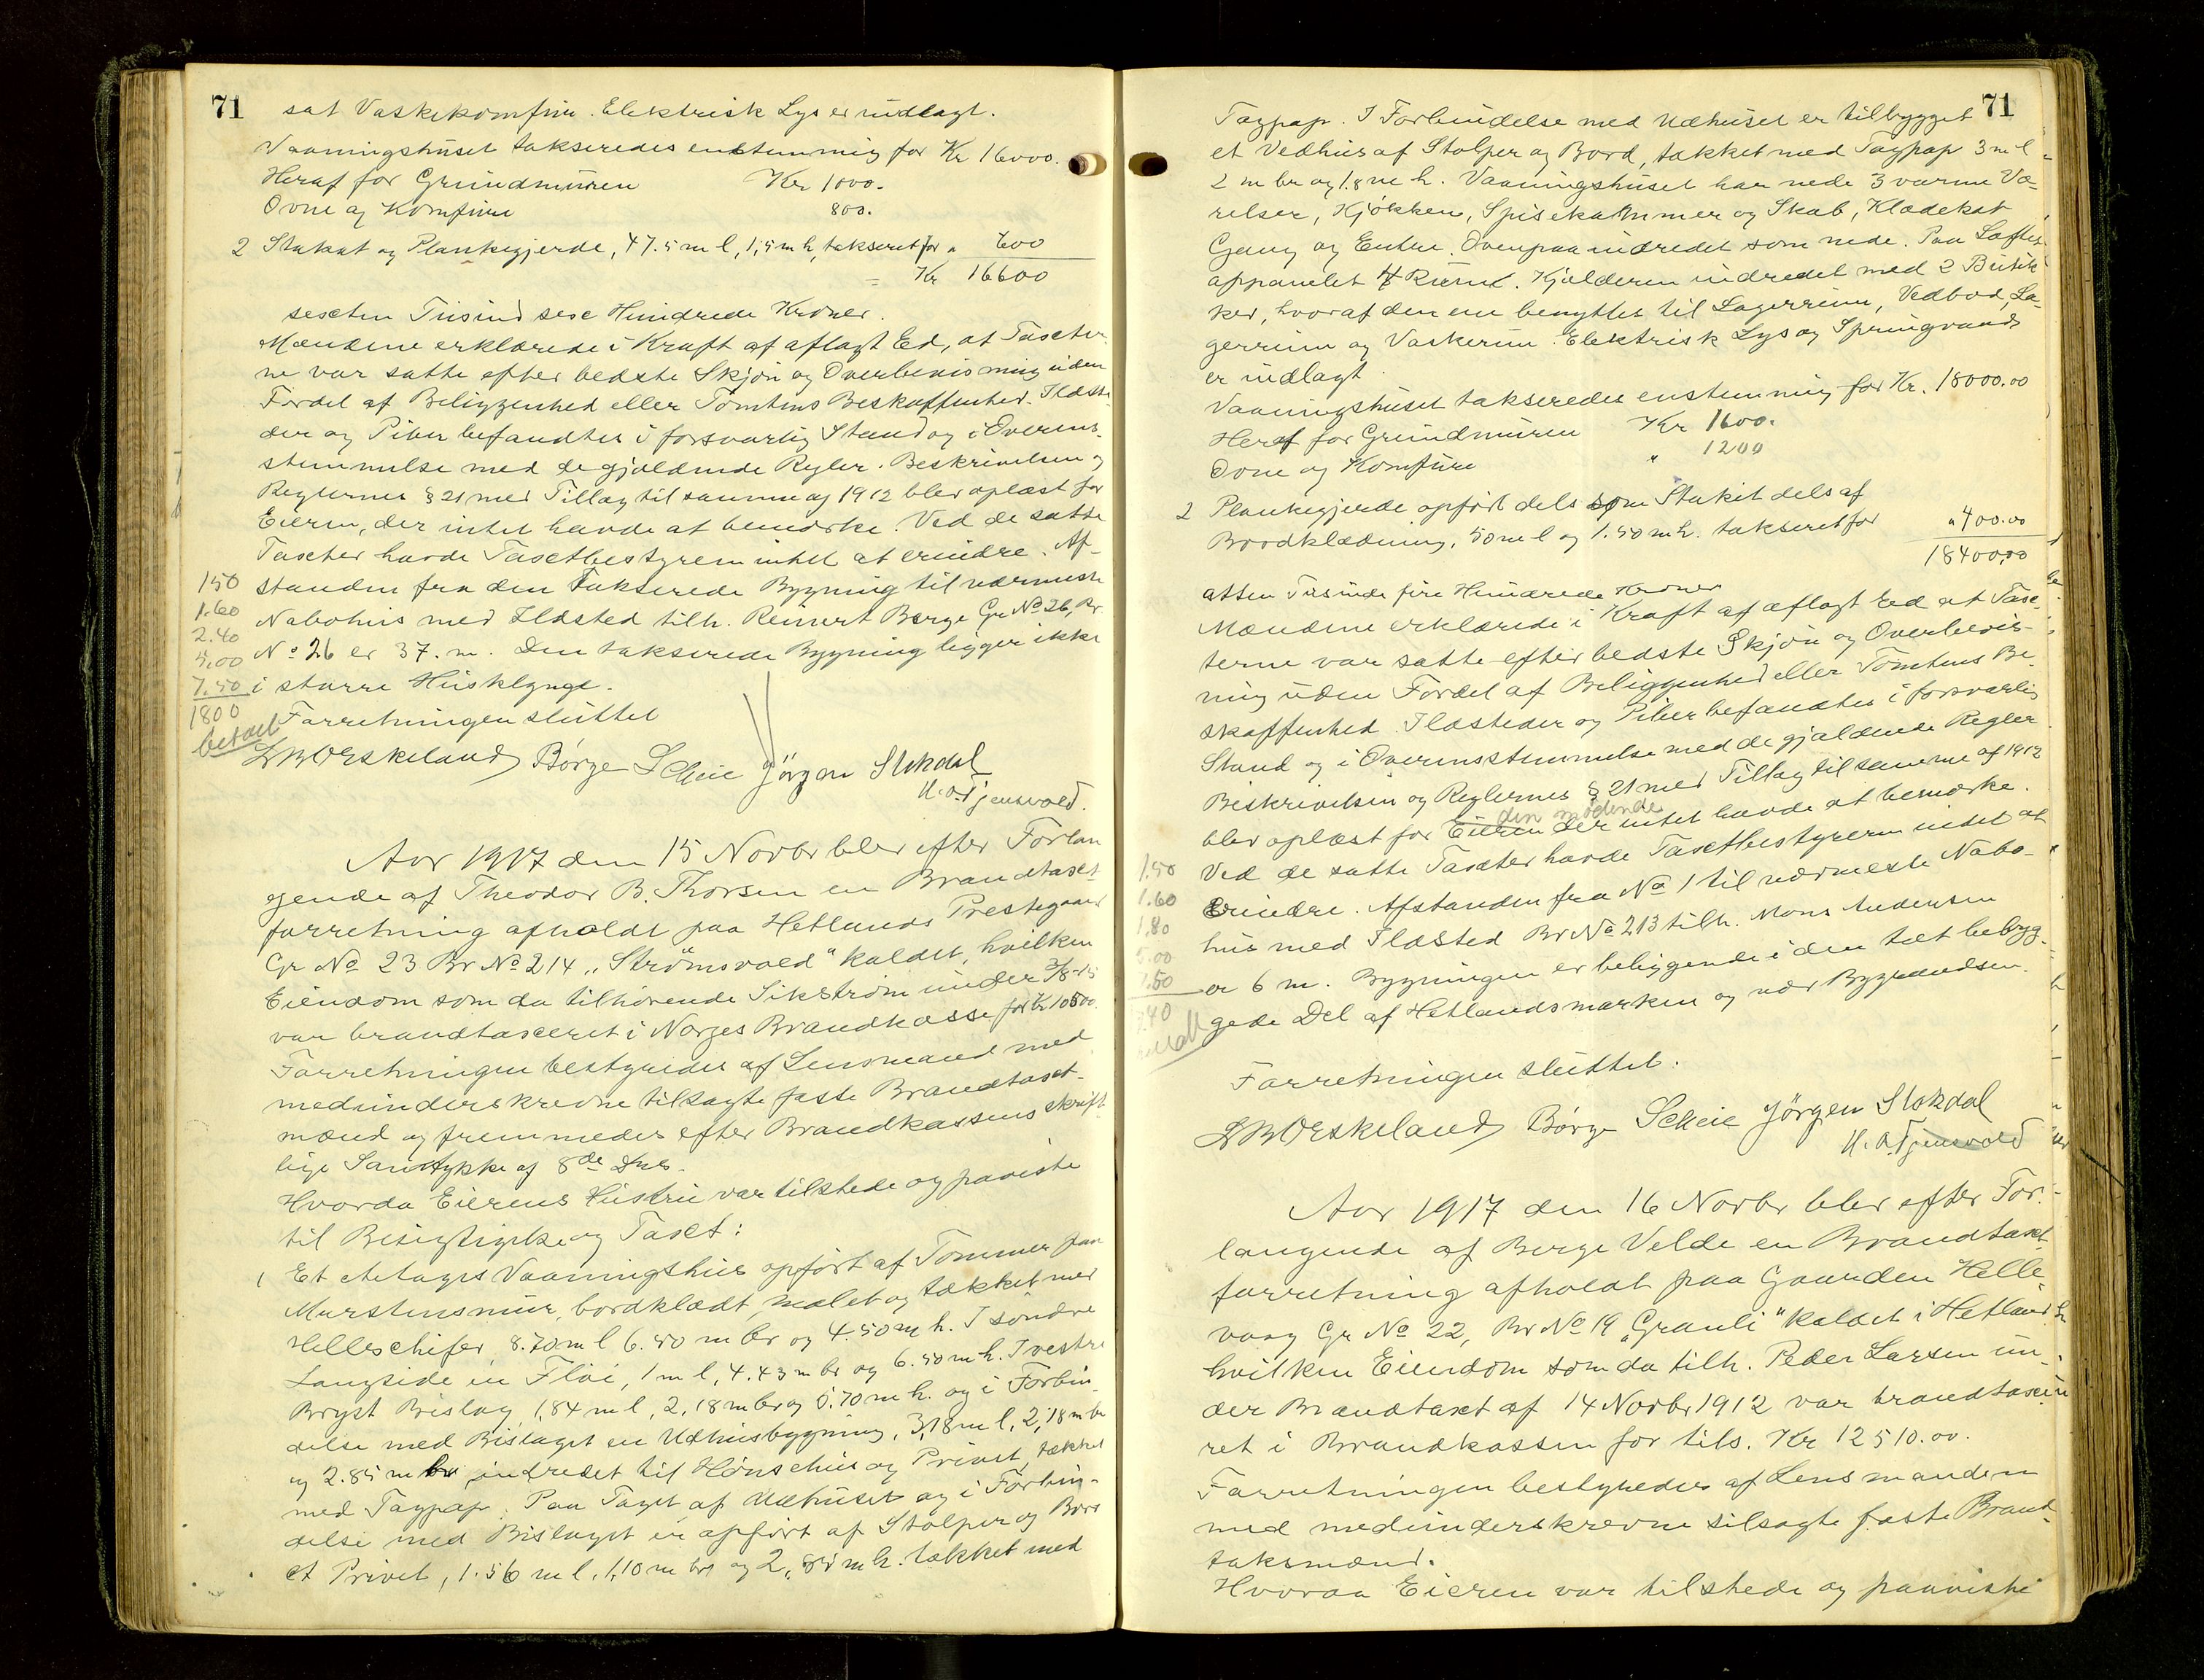 71
sat Vaskekomfur. Elektrisk Lys er indlagt.
Vaaningshuset takseredes enstemmig for Kr 16000.
Heraf for Grundmuren Kr 1000.
Ovne og Komfure 800.
2 Stakat og Plankegjerde, 47.5 m l, 1,5 m h, takseret for " 600
= Kr 16600
sexten Tusind sex Hundrede Kroner.
Mændene erklærede i Kraft af aflagt Ed, at Taxter
ne var satte efter bedste Skjøn og Overbevisning uden
Fordel af Beliggenhed eller Tomtens Beskaffenhed. Ildste
der og Piber befandtes i forsvarlig Stand og i Overens-
stemmelse med de gjældende Regler. Beskrivelsen og
Reglernes § 21 med Tillæg til samme af 1912 blev oplæst for
Eieren, der intet havde at bemærke. Ved de satte
Taxter havde Taxtbestyreren intet at erindre. Af-
standen fra den takserede Bygning til nærmeste
Nabohus med Ildsted tilh. Reinert Berge Gr No 26, Br.
No 26 er 37. m. Den takserede Bygning ligger ikke
i større Husklynge.
Forretningen sluttet
150
1.60
2.40
5.00
7.50
1800
betalt
L B Orskeland Børge Scheie Jørgen Stokdal
H. O. Tjensvold.
Aar 1917 den 15 Novbr blev efter Forlan
gende af Theodor B. Thorsen en Brandtaxt-
forretning afholdt paa Hetlands Prestegaard
Gr No 23 Br No 214 „Strømsvold" kaldet, hvilken
Eiendom som da tilhørende Sikstrøm under 3/8-15
var brandtaxeret i Norges Brandkasse for Kr 10500.
Forretningen bestyredes af Lensmand med
medunderskrevne tilsagte faste Brandtaxt-
mænd og fremmedes efter Brandkassens skrift
lige Samtykke af 8de Ds.
Hvorda Eierens Hustru var tilstede og paaviste
til Besigtigelse og Taxt:
1 Et etetages Vaaningshus opført af Tømmer paa
Murstensmur, bordklædt, malet og tækket med
Helleschifer, 8.70 m l 6.50 m br og 4.50 m h. I søndre
Langside en Fløi, 1 m l, 4.43 m br og 6.50 m h. I vestre
Bryst Bislag, 1,84 m l, 2,18 m br og 5.70 m h. og i Forbin-
delse med Bislaget en Udhusbygning, 3,18 m l, 2,18 m br
og 2.85 m h indredet til Hønsehus og Privet, tækket
med Tagpap. Paa Taget af Udhuset og i Forbin-
delse med Bislaget er opført af Stolper og Bord
et Privet, 1.56 m l, 1,10 m br og 2,85 m h. tækket med
71
Tagpap. I Forbindelse med Udhuset er tilbygget
et Vedhus af Stolper og Bord, tækket med Tagpap 3 m l
2 m br og 1.8 m h. Vaaningshuset har nede 3 varme Væ-
relser, Kjøkken, Spisekammer og Skab, Klædekot
Gang og Entre. Ovenpaa indredet som nede. Paa Loftet
oppanelet 4 Rum. Kjælderen indredet med 2 Butik
ker, hvoraf den ene benyttes til Lagerrum, Vedbod, La-
gerrum og Vaskerum. Elektrisk Lys og Springvand
er indlagt.
Vaaningshuset takseredes enstemmig for Kr. 18000.00
Heraf for Grundmuren Kr 1600.
Ovne og Komfure " 1200
2 Plankegjerde opført dels som Stakit dels af
Bordklædning, 50 m l og 1.50 m h. takseret for " 400.00
18400,00
atten Tusinde fire Hundrede Kroner
Mændene erklærede i Kraft af aflagt Ed at Tax-
terne var satte efter bedste Skjøn og Overbevis-
ning uden Fordel af Beliggenhed eller Tomtens Be-
skaffenhed. Ildsteder og Piber befandtes i forsvarlig
Stand og i Overensstemmelse med de gjældende Regler
Beskrivelsen og Reglernes § 21 med Tillæg til samme af 1912
den mødende
blev oplæst for Eieren der intet havde at bemærke.
Ved de satte Taxter havde Taxtbestyreren intet at
Erindre. Afstanden fra No 1 til nærmeste Nabo-
hus med Ildsted Br No 213 tilh. Mons Andersen
er 6 m. Bygningen er beliggende i den tæt bebyg-
gede Del af Hetlandsmarken og nær Bygrændsen.
1.50
1.60
1.80
5.00
7.50
Forretningen sluttet.
L B Orskeland Børge Scheie Jørgen Stokdal
H. O. Tjensvold
Aar 1917 den 16 Novbr blev efter For-
langende af Berge Velde en Brandtaxt
forretning afholdt paa Gaarden Hille-
vaag Gr No 22, Br No 19 „Granli" kaldet i Hetland
hvilken Eiendom som da tilh. Peder Larsen un-
der Brandtaxt af 14 Novbr 1912 var brandtaxe-
ret i Brandkassen for tils. Kr 12510.00.
Forretningen bestyredes af Lensmanden
med medunderskrevne tilsagte faste Brand-
taksmænd.
Hvoraa Eieren var tilstede og paaviste